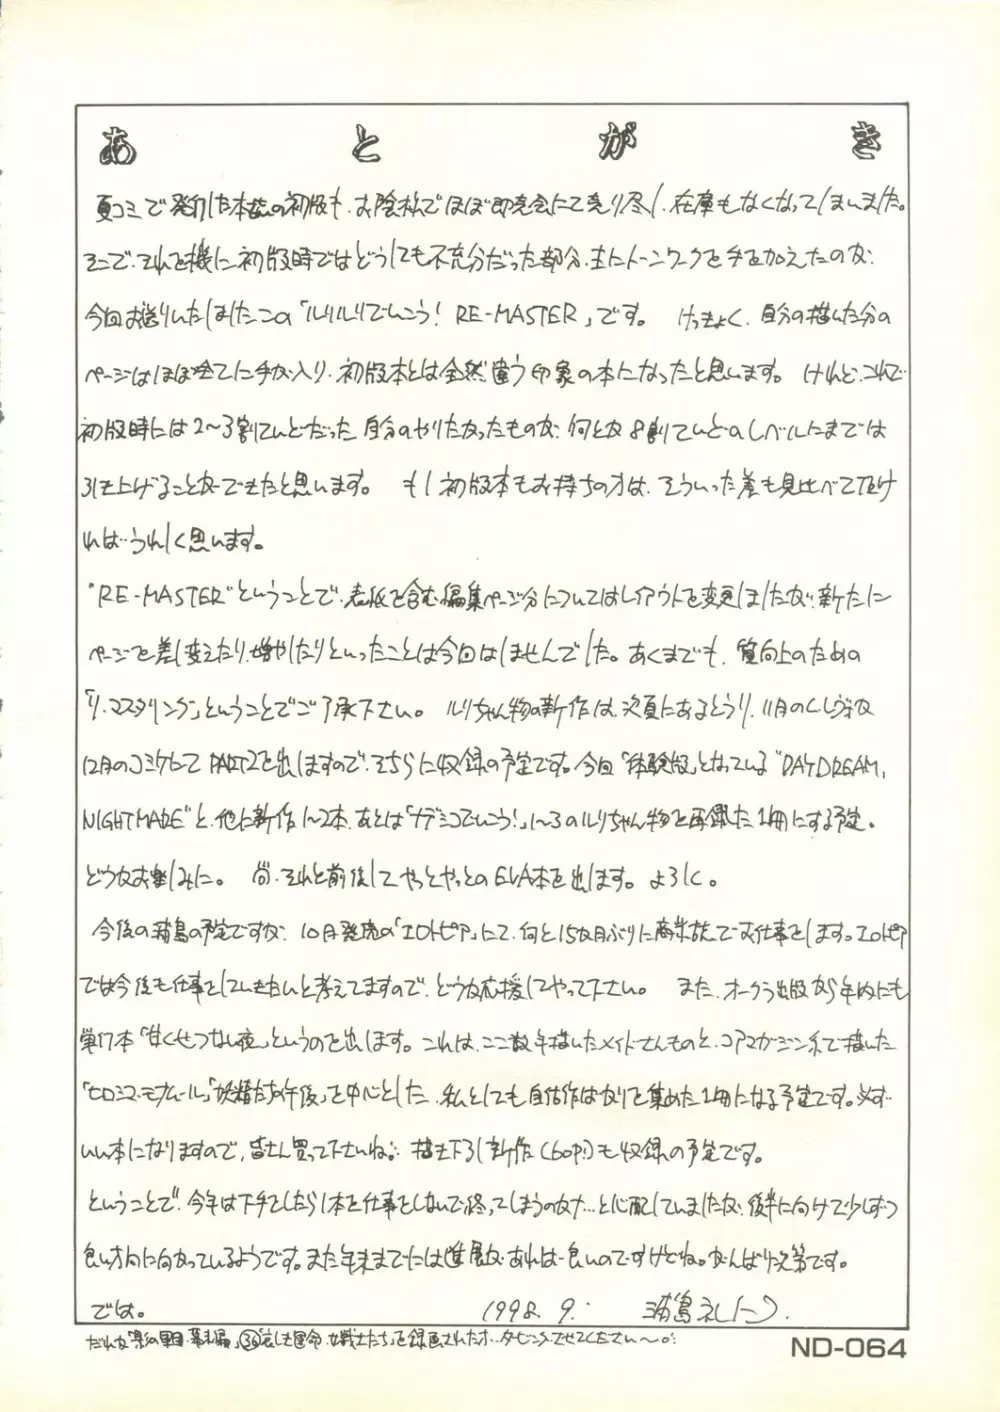 あとがき
夏コミで発行した本誌の初版も、お陰様でほぼ即売会にて売り尽し、在庫もなくなってしまいました。
そこで、それを機に、初版時ではどうしても不充分だった部分、主にトーンワークを手を加えたのが、
今回お送りいたしましたこの「ルリルリでいこう! RE-MASTER」です。 けっきょく、自分の描いた分の
ページはほぼ全てに手が入り、初版本とは全然違う印象の本になったと思います。 けれど、これで
初版時には2〜3割ていどだった自分のやりたかったものが、何とか8割ていどのレベルにまでは
引き上げることができたと思います。 もし初版本もお持ちの方は、そういった差も見比べて頂け
ればうれしく思います。
"RE-MASTER"ということで、表紙を含む編集ページ分についてはレイアウトを変更しましたが、新たに
ページを差し変えたり、増やしたりといったことは今回はしませんでした。あくまでも、質向上のための
「リ・マスタリング」ということでご了承下さい。 ルリちゃん物の新作は、次頁にあるとうり、11月のC.レヴォか
12月のコミケにて PART2を出しますので、そちらに収録の予定です。今回「体験版」となっている"DAYDREAM,
NIGHTMARE"と、他に新作1〜2本、あとは「ナデシコでいこう!」1〜3のルリちゃん物を再録した1冊にする予定。
どうかお楽しみに。 尚、それと前後してやっとやっとのEVA本を出します。よろしく。
今後の浦島の予定ですが、10月発売の「エロトピア」にて、何と15か月ぶりに商業誌でお仕事をします。エロトピア
では今後も仕事をしていきたいと考えてますので、どうか応援してやって下さい。 また、オークラ出版から年内にも
単行本「甘くせつない夜」というのを出します。これは、ここ数年描いたメイドさんものと、コアマガジン系で描いた
「ヒロシマ・モナムール」「妖精たちの午後」を中心とした、私としても自信作ばかりを集めた1冊になる予定です。必ず
いい本になりますので、皆さん買って下さいね。 描き下ろし新作(60p!)も収録の予定です。
ということで、今年は下手をしたら1本も仕事をしないで終ってしまうのかナ…と心配していましたが、後半に向けて少しずつ
良い方向に向かっているようです。また年末までには進展があれば良いのですけどね。がんばり次第です。
では。 1998. 9. 浦島礼仁
ND-064